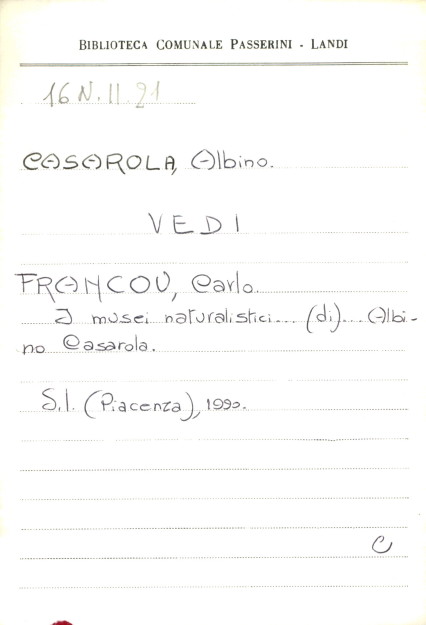 BIBLIOTECA COMUNALE PASSERINI - LANDI
16 N. II. 21
CASAROLA, Albino.
VEDI
FRANCOU, Carlo.
I musei naturalistici... (di)... Albi-
no Casarola.
S.l. (Piacenza), 1990.
C